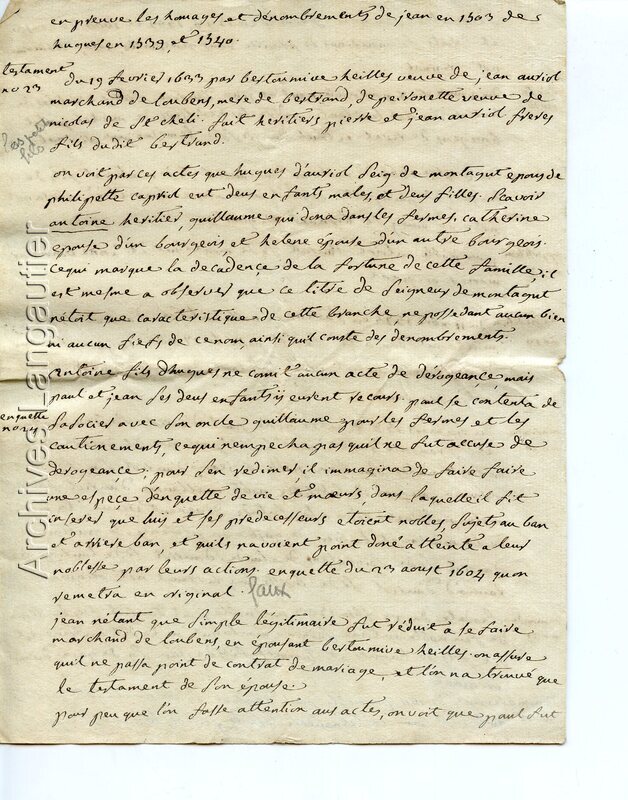 en preuve les homages et dénombrements de jean en 1503 de
hugues en 1539, et 1540.
testament
no 23
du 19 fevrier 1633 par bertoumive heilles veuve de jean auriol
marchand de loubens, mere de bertrand, de peironette veuve de
nicolas de St cheli. fait heritiers pierre et jean auriol freres
fils dudit bertrand.
ses petits
fils
on voit par ces actes que hugues d'auriol seig. de montagut epous de
philipette capriol eut deus enfants males, et deus filles. scavoir
antoine heritier, guillaume qui dona dans les fermes, catherine
epouse d'un bourgeois, et helene épouse d'un autre bourgeois.
ce qui marque la decadence de la fortune de cette famille, il
est mesme a observer que ce titre de seigneur de montagut
nétoit que caracteristique de cette branche ne possedant aucun bien
ni aucun fiefs de ce nom, ainsi quil conste des denombrements.
antoine fils d'hugues ne comit aucun acte de dérogeance, mais
paul et jean ses deus enfants ÿ eurent recours. paul se contenta de
enquette
no 24
sasocier avec son oncle guillaume pour les fermes et les
cautionements, ce qui nempecha pas quil ne fut accuse de
derogeance; pour s'en redimer, il immagina de faire faire
une espece d'enquette de vie et mœurs dans laquelle il fit
inserer que luÿ et ses predecesseurs etoient nobles, sujets au ban
et arriere ban, et quils navoient point doné atteinte a leur
noblesse par leurs actions. enquette du 23 aoust 1604 quon
remetra en original. faux
jean nétant que simple légitimaire fut réduit a se faire
marchand de loubens, en épousant bertoumive heilles. on assure
quil ne passa point de contrat de mariage, et lon na trouvé que
le testament de son épouse.
pour peu que lon fasse attention aus actes, on voit que paul fut
Archives Langautier